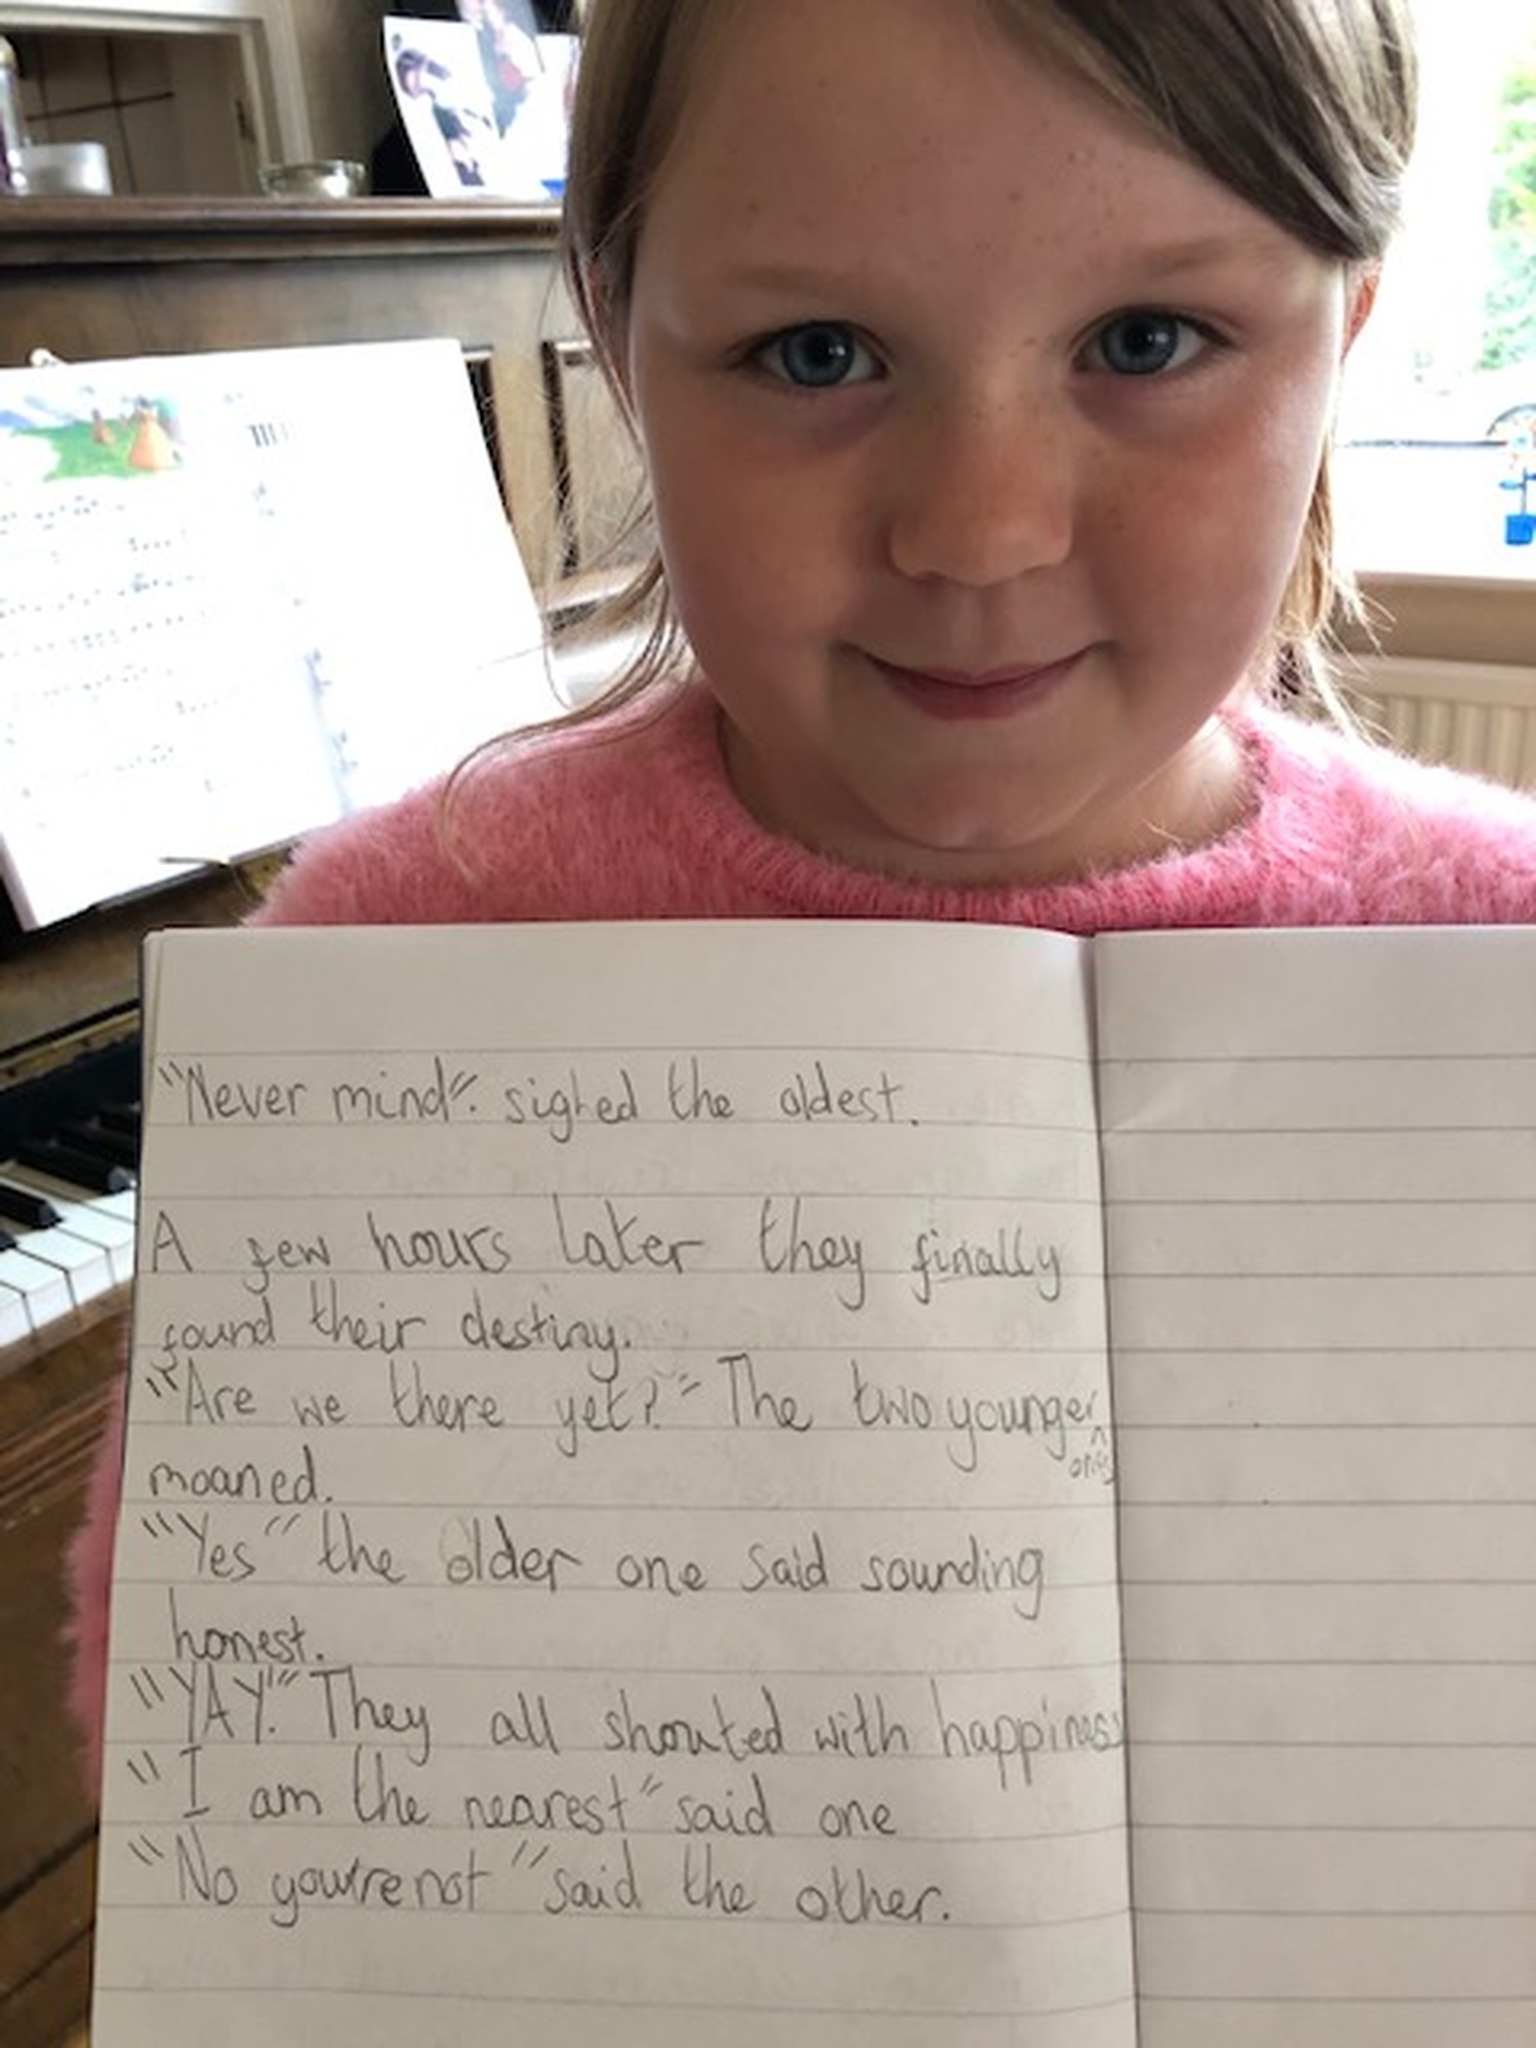 "Never mind". sighed the oldest.
A few hours later they finally
found their destiny.
"Are we there yet?" The two younger
ones
moaned.
"Yes" the older one said sounding
honest.
"YAY!" They all shouted with happiness
"I am the nearest" said one
"No you're not" said the other.